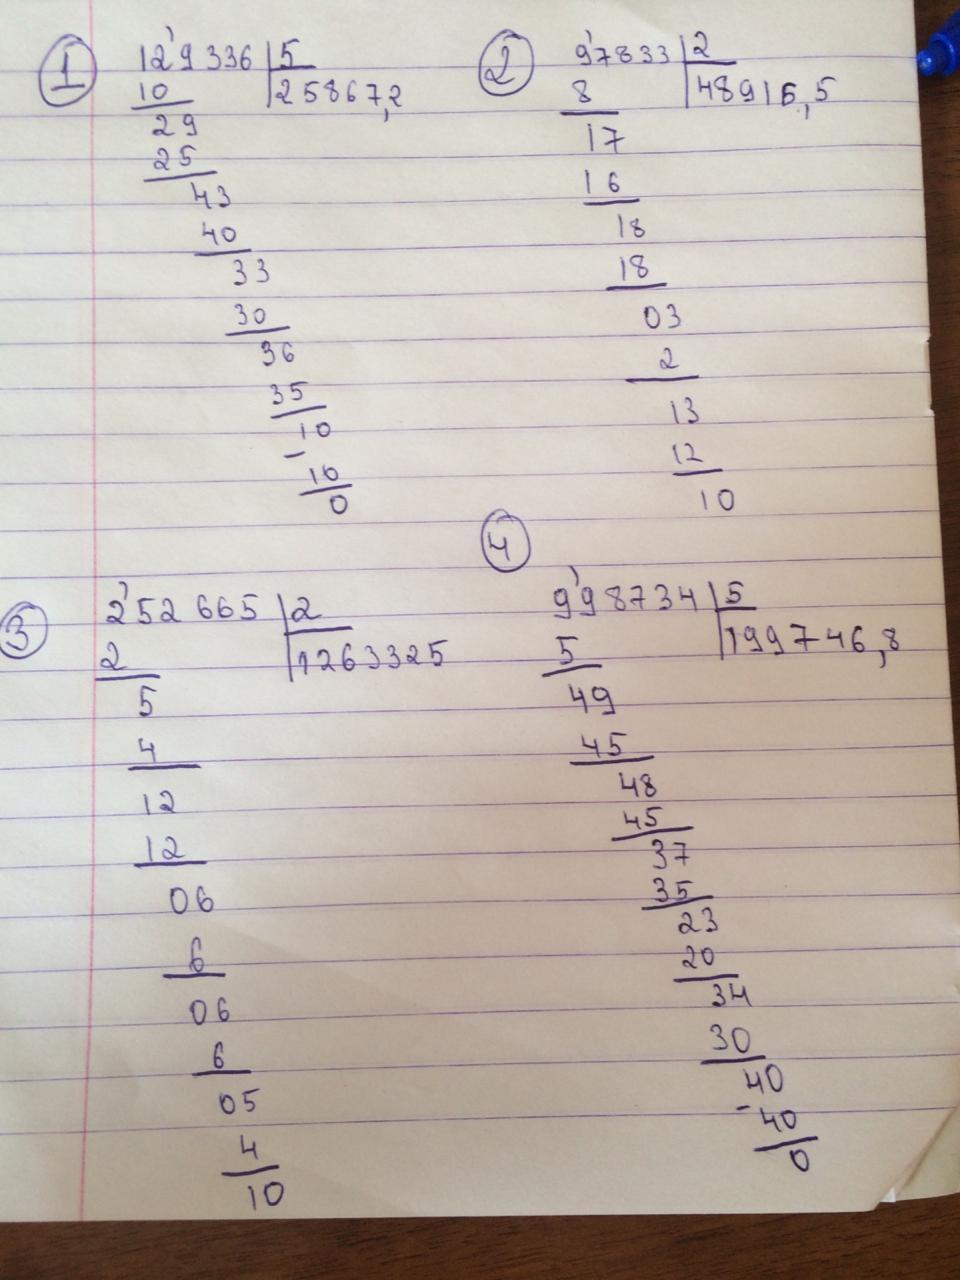 1
129336 5
10 25867,2
29
25
43
40
33
30
36
35
10
- 10
0
2
97833 2
8 48916,5
17
16
18
18
03
2
13
12
10
3
252665 2
2 1263325
5
4
12
12
06
6
06
6
05
4
10
4
998734 5
5 199746,8
49
45
48
45
37
35
23
20
34
30
40
- 40
0